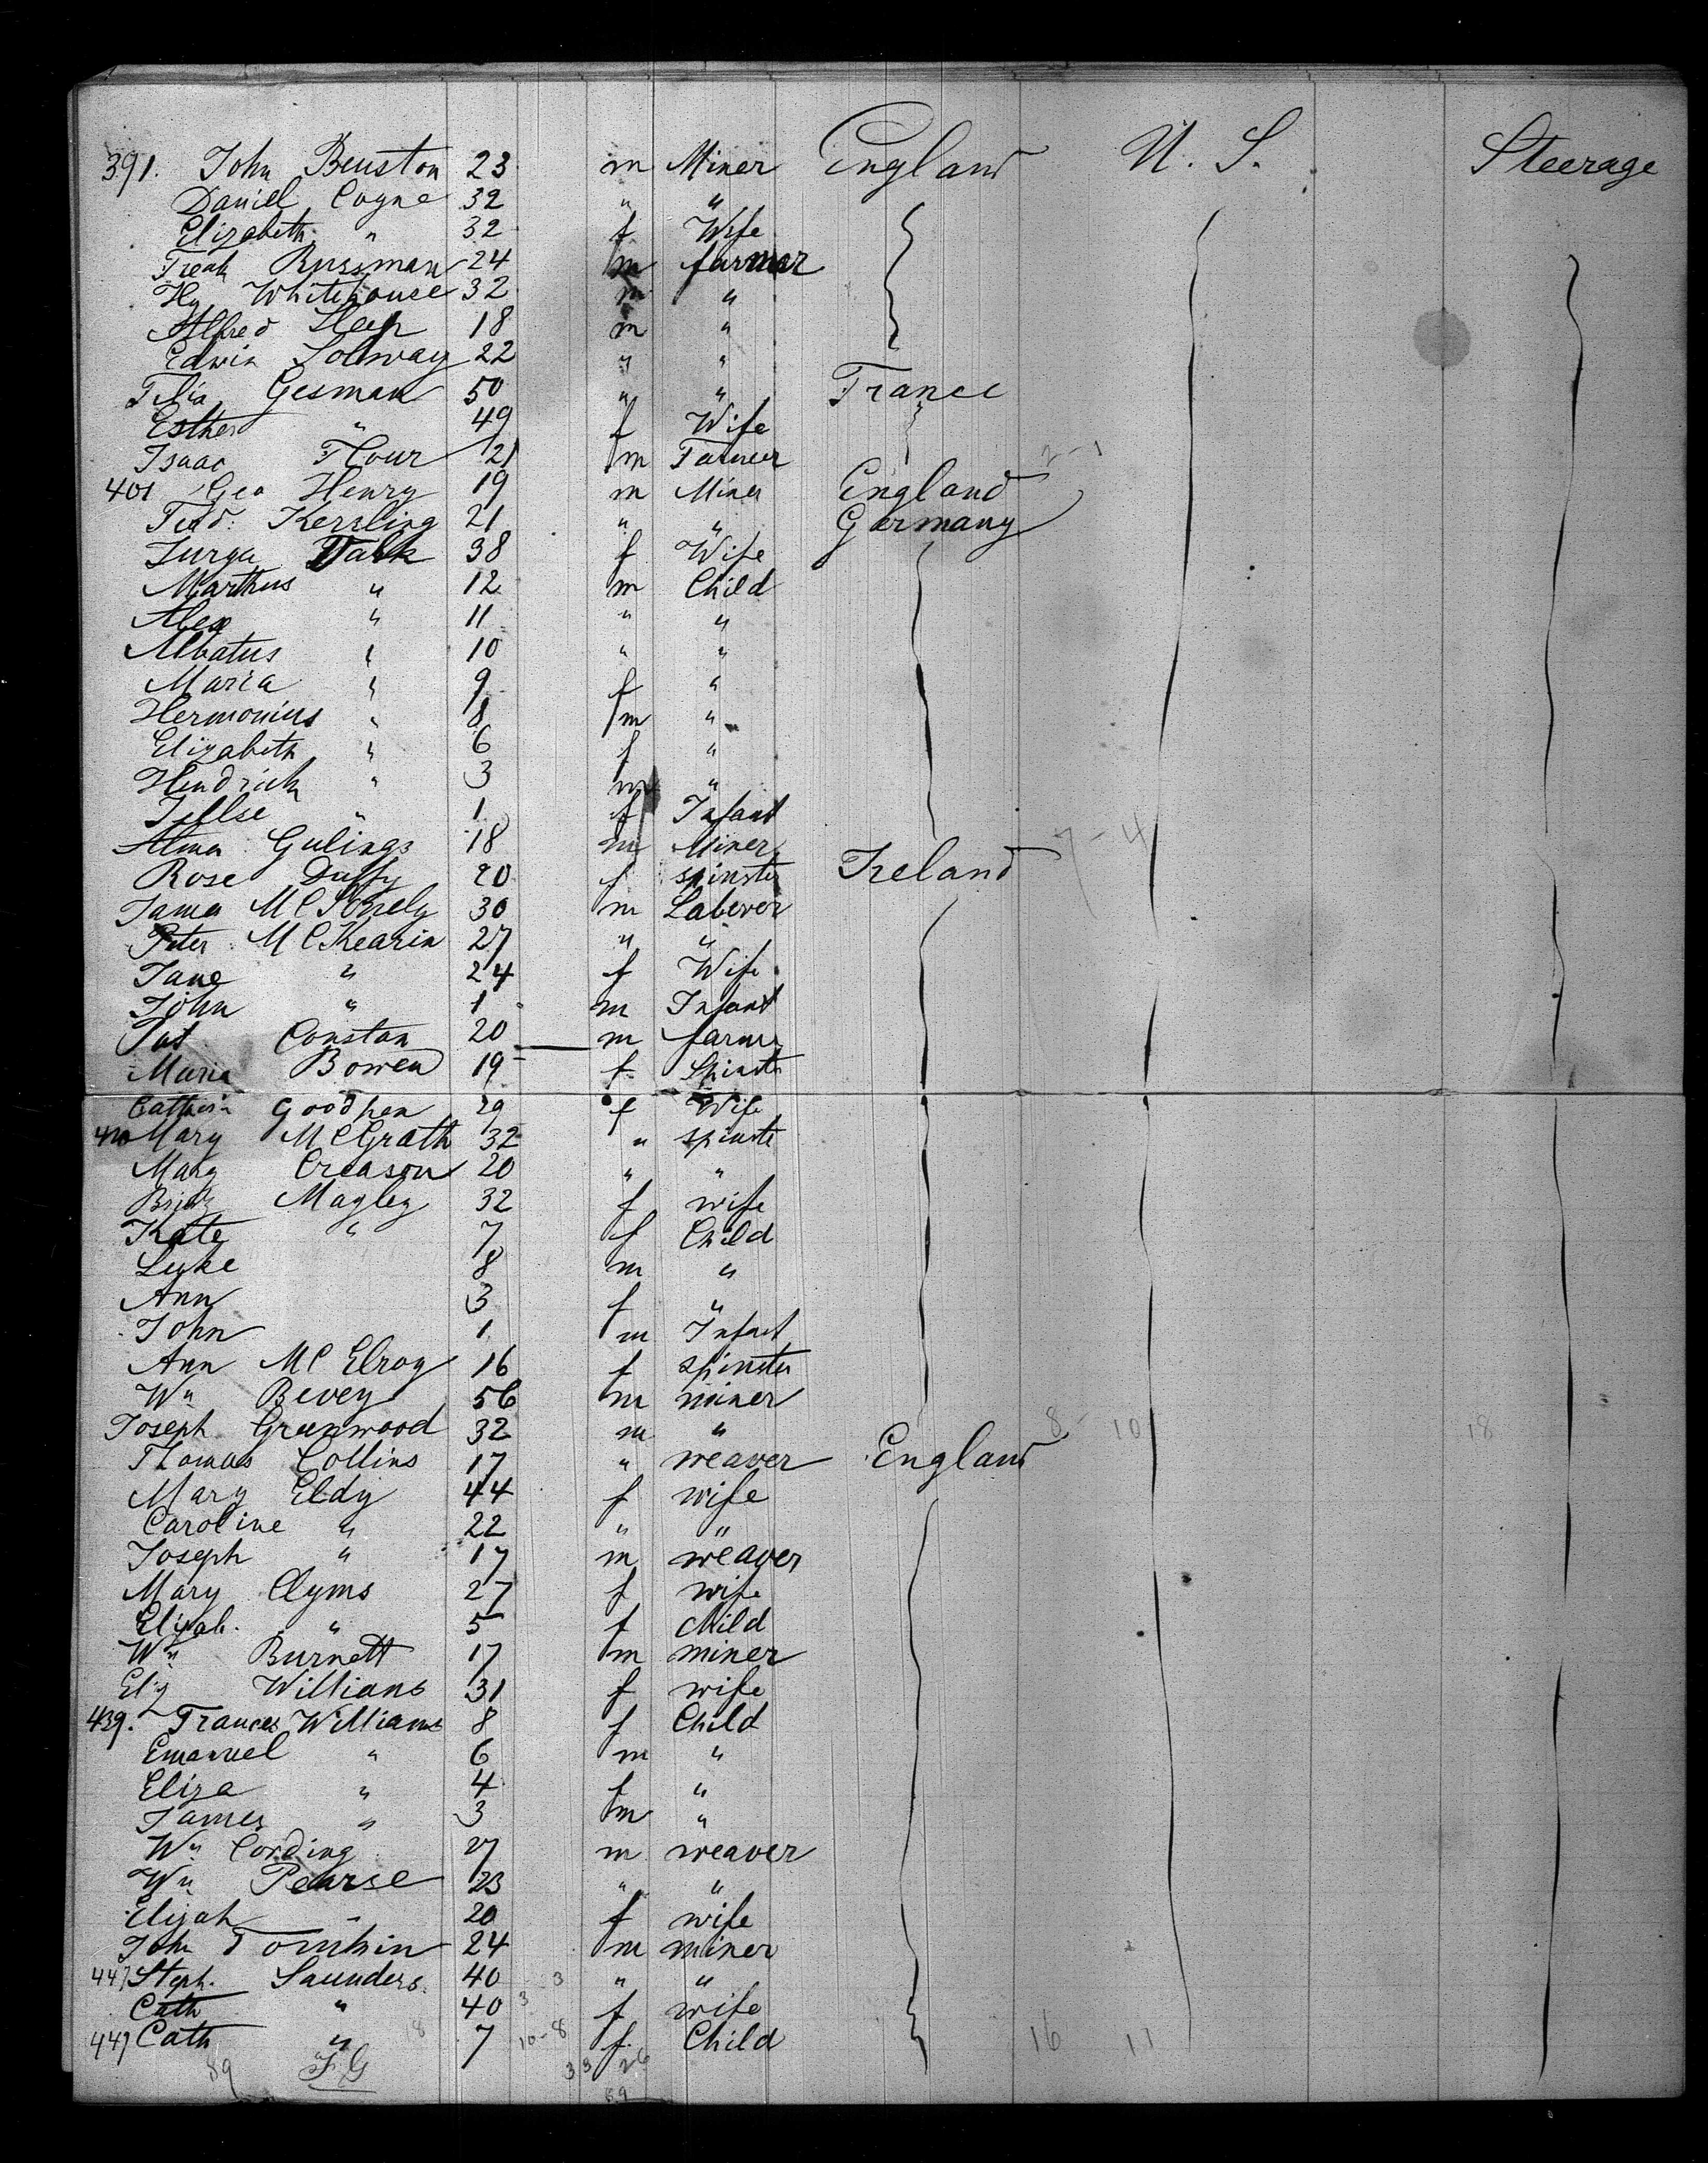 391. John Beuston 23 m Miner England U. S. Steerage
Daniel Coyne 32 " "
Elizabeth " 32 f Wife
Fredk Bussman 24 m farmer
Hy Whitehouse 32 m "
Alfred Sleep 18 m "
Edwin Solway 22 " "
Felia Gesman 50 " " France
Esther " 49 f Wife
Isaac Flour 21 m Farmer 2-1
401 Geo Henry 19 m Miner England
Ferd: Kersling 21 " " Germany
Jurga Valk 38 f Wife
Marthus " 12 m Child
Alex " 11 " "
Albatus " 10 " "
Maria " 9 f "
Hermonius " 8 m "
Elizabeth " 6 f "
Hendrick " 3 m "
Jellse " 1 f Infant
Gulings 18 m Miner 7-4
Rose Duffy 20 f spinster Ireland
James 30 m Laberer
Peter McKearin 27 " "
Jane " 24 f Wife
John " 1 m Infant
Pat Constan 20 m farmer
Maria Bowen 19 f Spinster
Catherin Goodhen 29 f Wife
Mary McGrath 32 " spinste
Mary Creason 20 " "
Bridt Magley 32 f wife
Kate " 7 f Child
Luke 8 m "
Ann 3 f "
John 1 m Infact
Ann McElroy 16 f spinster
Wm Bevey 56 m miner
Joseph Greenwood 32 m " 8-10 18
Thomas Collins 17 " weaver England
Mary Eldy 44 f wife
Caroline " 22 " "
Joseph " 17 m weaver
Mary Clyms 27 f wife
Elizab. " 5 f Child
Wm Burnett 17 m miner
Eliz Williams 31 f wife
439. Frances Williams 8 f Child
Emanuel " 6 m "
Eliza " 4 f "
James " 3 m "
Wm Cording 27 m weaver
Wm Pearse 23 " "
Elizah " 20 f wife
John Tomkin 24 m miner
447 Steph. Saunders 40 3 " "
Cath " 40 3 f wife
447 Cath " 18 7 10-8 f. Child 16 11
89 F G 33 26
59